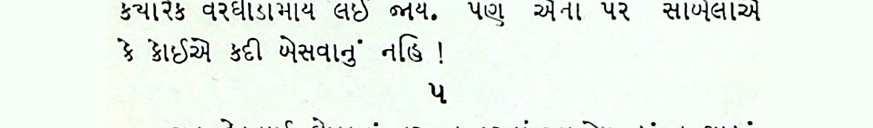 ક્યારેક વરઘોડામાંય લઈ જાય. પણ એના પર સાબેલાએ
કે કોઈએ કદી બેસવાનું નહિ !
૫